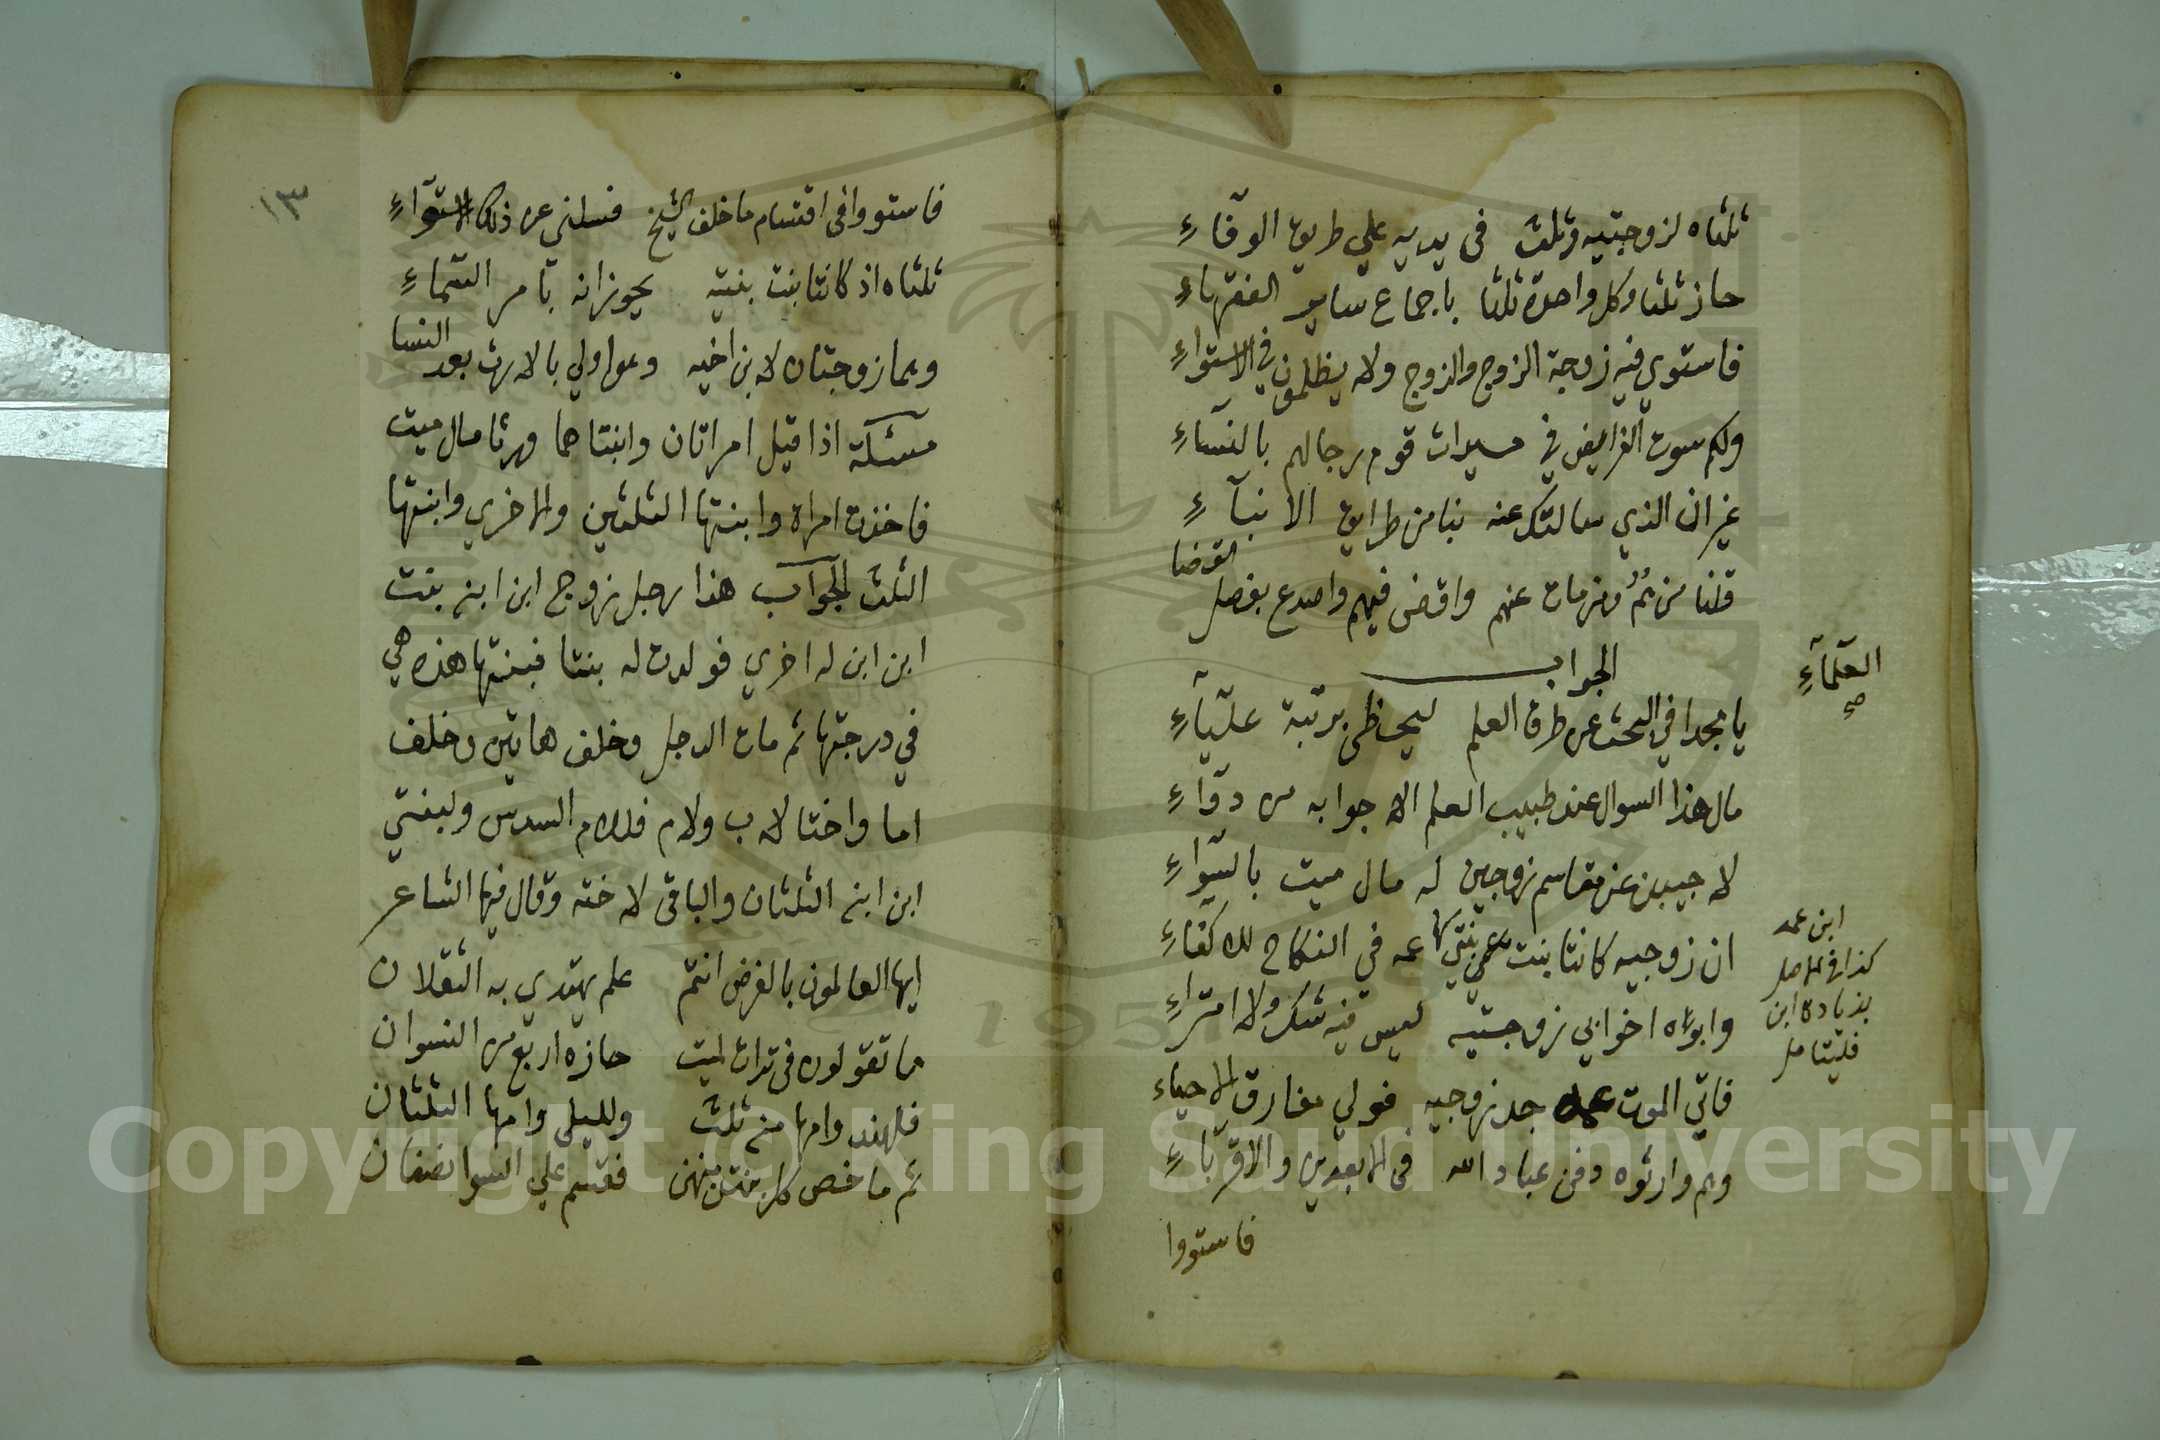 ثلثاه لزوجتيه وثلث في يديه علي طريق الوفاء
حاز ثلثا وكل واحدة ثلثا باجماع ساير الفقهاء
فاستوي فيه زوجة الزوج والزوج ولا يظلمن في الاستواء
ولكم سوت الفرايض في ميراث قوم رجالهم بالنساء
غير ان الذي سالتك عنه بنا من طرايق الانباء
قلنا من ثم ومن مات عنهم واقض فيهم واصدع بفصل القضا
الجواب
يا مجدا في البحث عن طرق العلم ليحظى برتبة علياء
مال هذا السوال عند طبيب العلم الا جوابه من دواء
لاجيبن عن مقاسم زوجين له مال ميت بالسواء
ان زوجيه كانتا بنت عمي بنتي عمه في النكاح للاكفاء
وابواه اخوا بي زوجتيه ليس فيه شك ولا امتراء
فاتي الموت جد زوجيه فولي مفارق الاحياء
وهم وارثوه دون عباد الله في الابعدين والاقرباء
فاستووا
العلماء
صح
ابن عمه
كذا في الاصل
بزيادة ابن
فليتامل
١٣
فاستووا في اقتسام ما خلف الشيخ فسلني عن ذلك الاستواء
ثلثاه اذ كانتا بنت بنتيه يحوزانه بامر السماء
وهما زوجتان لابن اخيه وهو اولي بالارث بعد النسا
مسئلة اذا قيل امراتان وابنتاهما ورثا مال ميت
فاخذت امراة وابنتها الثلثين والاخري وابنتها
الثلث الجواب هذا رجل زوج ابن ابنه بنت
ابن ابن له اخري فولدت له بنتا فبنتها هذه هي
في درجتها ثم مات الرجل وخلف هاتين وخلف
اما واختا لاب ولام فللام السدس ولبنتي
ابن ابنه الثلثان والباقي لاخته وقال فيها الشاعر
ايها العالمون بالفرض انتم علم يهتدي به الثقلان
ما تقولون في تراث لميت حازه اربع من النسوان
فلهند وامها منه ثلث ولليلى وامها الثلثان
ثم ما خص كل بنتين منهن فقسم علي السوا نصفان
Copyright © King Saud University
1957